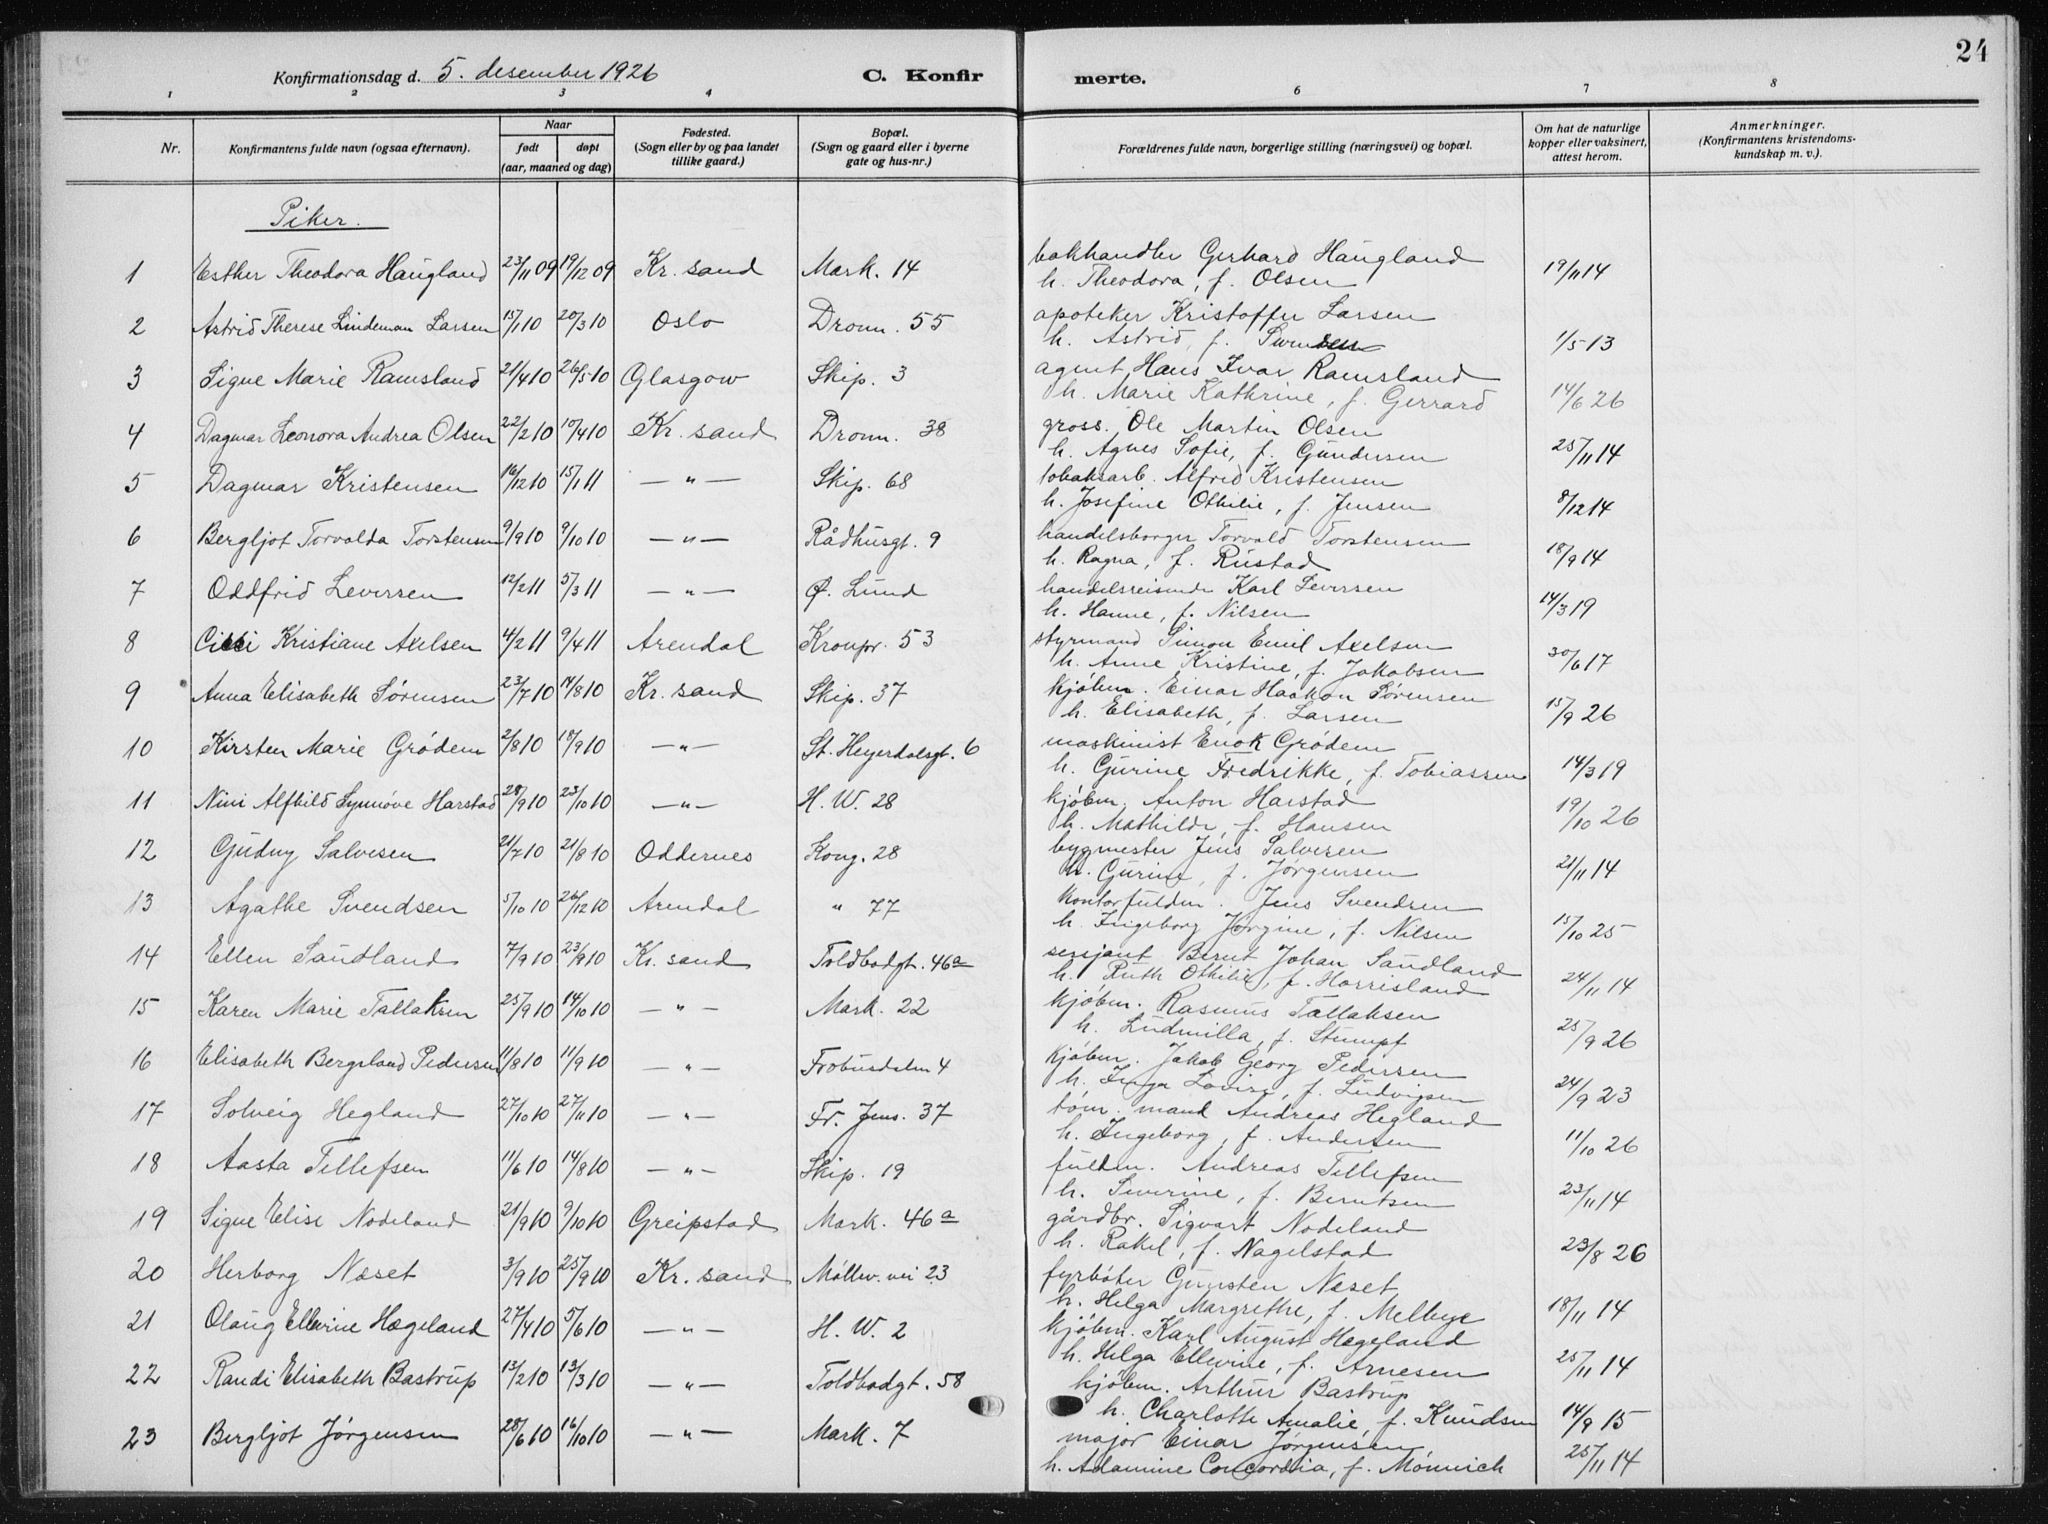 24
Konfirmationsdag d. 5. desember 1926 C. Konfir merte.
1 2 3 4 6 7 8
Nr. Konfirmantens fulde navn (ogsaa efternavn). Naar født døpt (aar, maaned og dag) Fødested. (Sogn eller by og paa landet tillike gaard.) Bopæl. (Sogn og gaard eller i byerne gate og hus-nr.) Forældrenes fulde navn, borgerlige stilling (næringsvei) og bopæl. Om hat de naturlige kopper eller vaksinert, attest herom. Anmerkninger. (Konfirmantens kristendomskundskap m. v.).
Piker.
1 Esther Theodora Haugland 23/11 09 19/12 09 Kr. sand Mark. 14 bokhandler Gerhard Haugland
h. Theodora, f. Olsen 19/11 14
2 Astrid Therese Lindeman Larsen 15/1 10 20/3 10 Oslo Dronn. 55 apoteker Kristoffer Larsen
h. Astrid, f. Svendsen 1/5 13
3 Signe Marie Ramsland 21/4 10 26/5 10 Glasgow Skip. 3 agent Hans Ivar Ramsland
h. Marie Kathrine, f. Gerrard 14/6 26
4 Dagmar Leonora Andrea Olsen 22/2 10 10/4 10 Kr. sand Dronn. 38 gross. Ole Martin Olsen
h. Agnes Sofie, f. Gundersen 25/11 14
5 Dagmar Kristensen 16/12 10 15/1 11 — " — Skip. 68 tobaksarb. Alfred Kristensen
h. Josefine Othilie, f. Jensen 8/12 14
6 Bergljot Torvalda Torstensen 9/9 10 9/10 10 — " — Rådhusgt. 9 handelsborger Torvald Torstensen
h. Ragna, f. Rustad 18/9 14
7 Oddfrid Leversen 12/2 11 5/3 11 — " — Ø. Lund handelsreisende Karl Leversen
h. Hanne, f. Nilsen 14/3 19
8 Cissi Kristiane Axelsen 4/2 11 9/4 11 Arendal Kronpr. 53 styrmand Simon Emil Axelsen
h. Anne Kristine, f. Jakobsen 30/6 17
9 Anna Elisabeth Sørensen 23/7 10 14/8 10 Kr. sand Skip. 37 kjøbm. Einar Haakon Sørensen
h. Elisabeth, f. Larsen 15/9 26
10 Kirsten Marie Grødem 2/8 10 18/9 10 — " — St. Heyerdalsgt. 6 maskinist Enok Grødem
h. Gurine Fredrikke, f. Tobiassen 14/3 19
11 Nini Alfhild Synnøve Harstad 28/9 10 23/10 10 — " — H. W. 28 kjøbm. Anton Harstad
h. Mathilde, f. Hansen 19/10 26
12 Gudny Salvesen 21/7 10 21/8 10 Oddernes Kong. 28 bygmester Jens Salvesen
h. Gurine, f. Jørgensen 21/11 14
13 Agathe Svendsen 5/10 10 26/12 10 Arendal " 77 kontorfuldm. Jens Svendsen
h. Ingeborg Jørgine, f. Nilsen 15/10 25
14 Ellen Sandland 7/9 10 23/9 10 Kr. sand Toldbodgt. 46a sersjant Bernt Johan Sandland
h. Ruth Othilie, f. Horrisland 24/11 14
15 Karen Marie Tallaksen 25/9 10 14/10 10 — " — Mark. 22 kjøbm. Rasmus Tallaksen
h. Ludmilla, f. Stumpf 25/9 26
16 Elisabeth Bergsland Pedersen 11/8 10 11/9 10 — " — Frobusdalen 4 kjøbm. Jakob Georg Pedersen
h. Inga Lovise, f. Ludvigsen 24/9 23
17 Solveig Hegland 27/10 10 27/11 10 — " — Fr. Jens. 37 tøm. mand Andreas Hegland
h. Ingeborg, f. Andersen 11/10 26
18 Aasta Tellefsen 11/6 10 14/8 10 — " — Skip. 19 fuldm. Andreas Tellefsen
h. Severine, f. Berntsen 23/11 14
19 Signe Elise Nodeland 21/9 10 9/10 10 Greipstad Mark. 46a gårdbr. Sigvart Nodeland
h. Rakel, f. Nagelstad 23/8 26
20 Herborg Næset 3/9 10 25/9 10 Kr. sand Møllev. vei 23 fyrbøter Gunsten Næset
h. Helga Margrethe, f. Melbye 18/11 14
21 Olaug Ellevine Hægeland 27/4 10 5/6 10 — " — H. W. 2 kjøbm. Karl August Hægeland
h. Helga Ellevine, f. Arnesen 25/11 14
22 Randi Elisabeth Bastrup 13/2 10 13/3 10 — " — Toldbodgt. 58 kjøbm. Arthur Bastrup
h. Charlotte Amalie, f. Knudsen 14/9 15
23 Bergljot Jørgensen 28/6 10 16/10 10 — " — Mark. 7 major Einar Jørgensen
h. Adamine Concordia, f. Mönnich 25/11 14